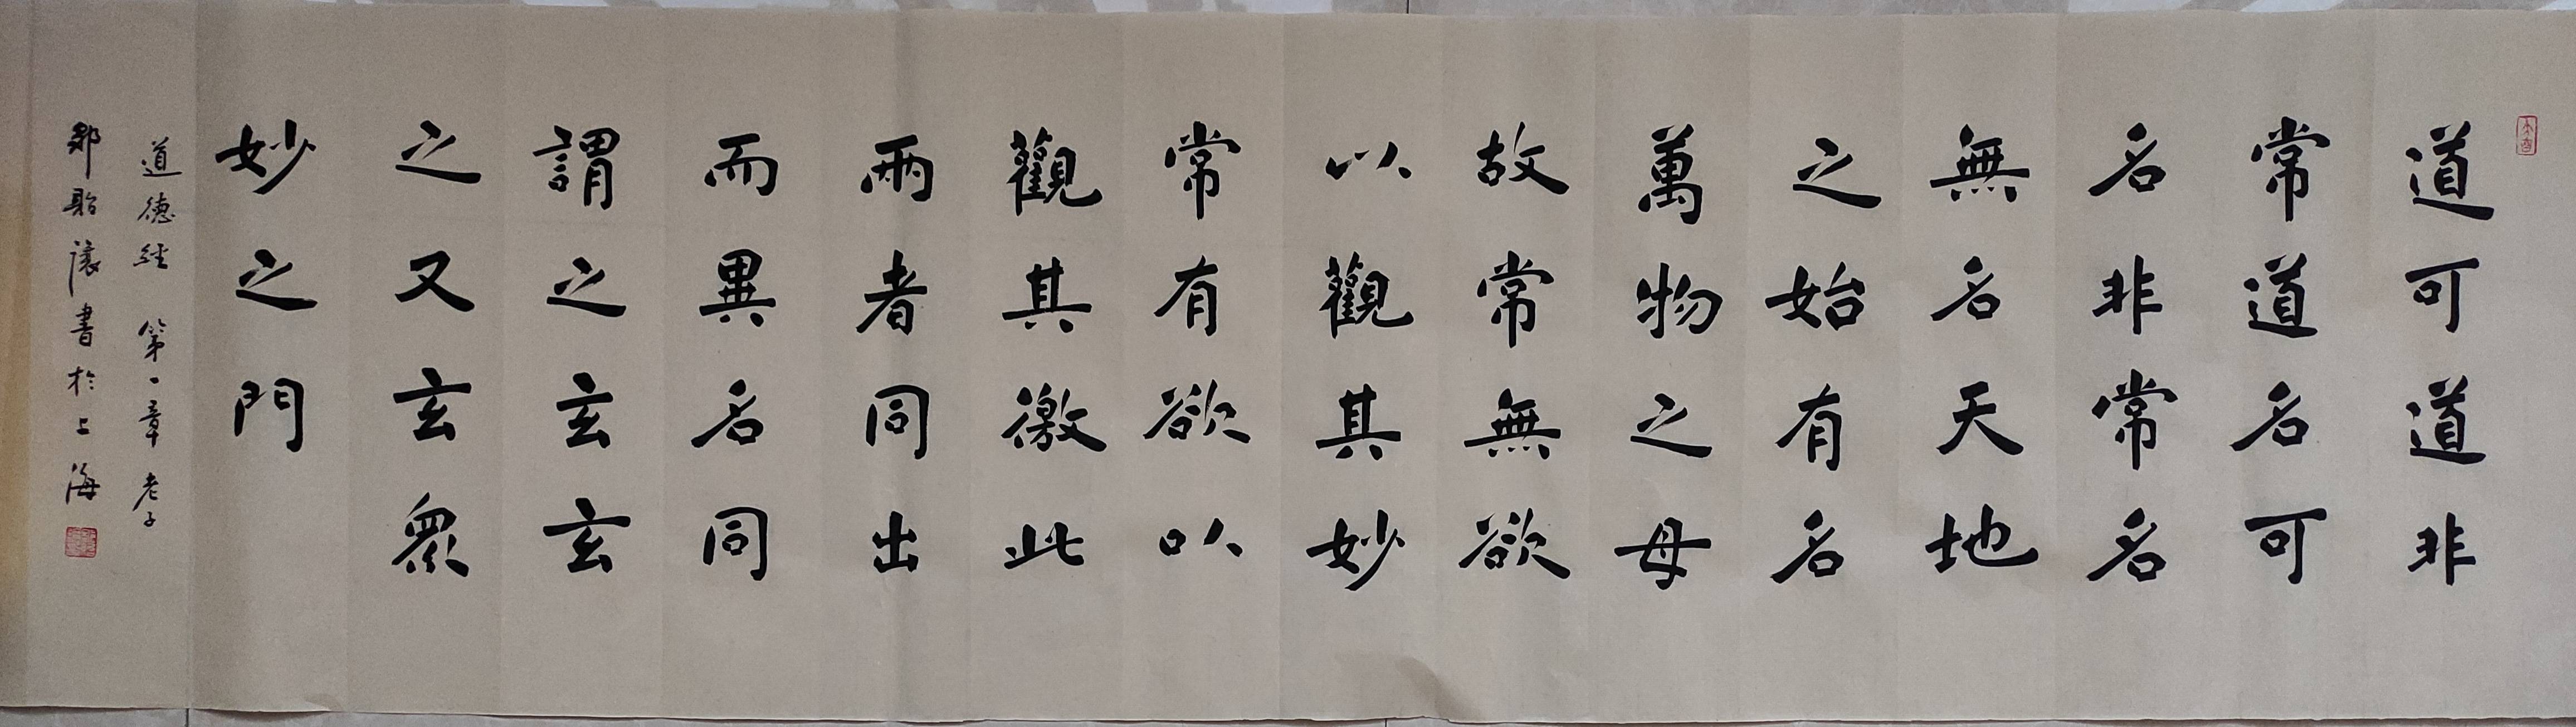 道可道非
常道名可
名非常名
無名天地
之始有名
萬物之母
故常無欲
以觀其妙
常有欲以
觀其徼此
兩者同出
而異名同
謂之玄玄
之又玄眾
妙之門
道德經 第一章 老子
書於上海